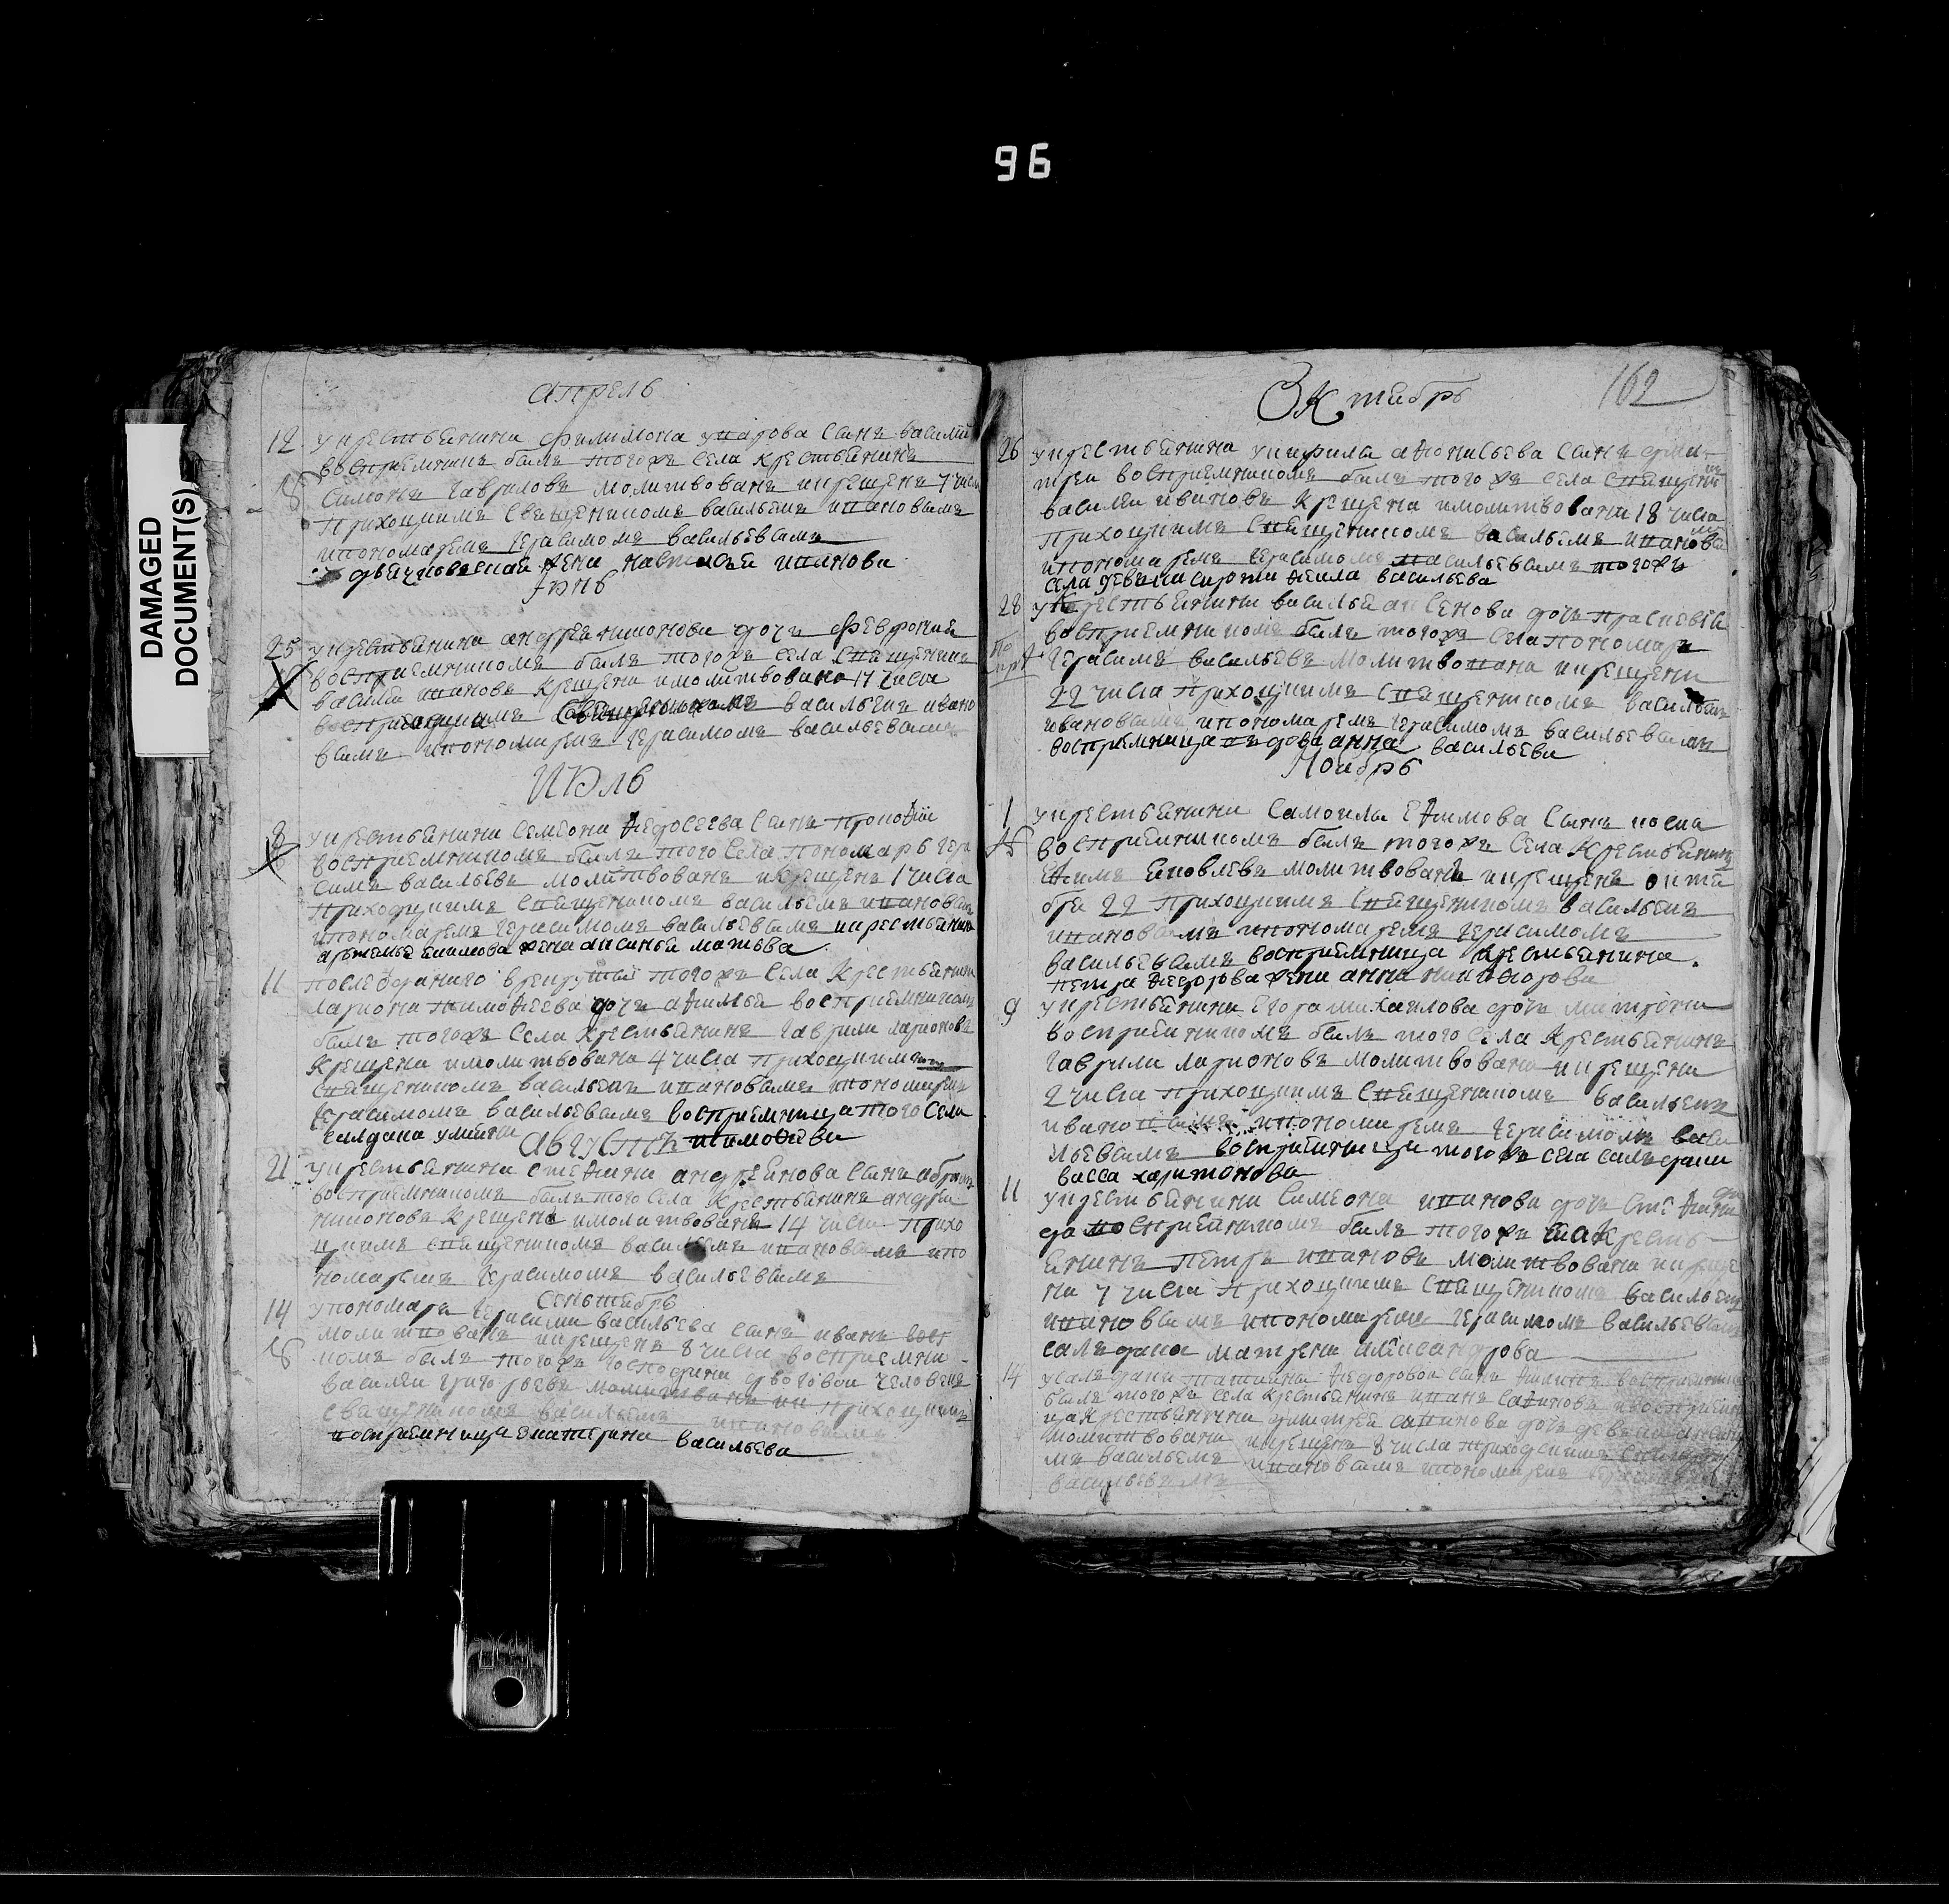 96
DAMAGED
DOCUMENT(S)
апрель
12 укрестьянина филимона уварова сынъ василий
восприемникъ былъ тогожъ села крестьянинъ
симонъ гавриловъ молитвованъ икрещенъ 7 числа
приходцкимъ священикомъ васильемъ ивановымъ
ипономаремъ герасимомъ васильевымъ
жена настасья иванова
Iюнь
25 укрестьянина андрея никонова дочь феврония
восприемникомъ былъ тогожъ села священикъ
василий ивановъ крещена имолитвована 17 числа
священикомъ васильемъ ивано
вымъ ипономаремъ герасимомъ васильевымъ
июль
8 укрестьянина семиона федосеева сынъ прокофии
восприемникомъ былъ того села пономарь гера
симъ васильевъ молитвованъ икрещенъ 1 числа
приходцкимъ священикомъ васильемъ ивановым
ипономаремъ герасимомъ васильевымъ икрестьянина
жена аксинья матвева
11 тогожъ села крестьянина
лариона тимофеева дочь афимья восприемникомъ
былъ тогожъ села крестьянинъ гаврила ларионовъ
крещена имолитвована 4 числа приходцкимъ
священикомъ васильемъ ивановымъ ипономаремъ
герасимомъ васильевымъ восприемница того села
салдата тимофеева
августъ
21 укрестьянина стефана андреянова сынъ
восприемникомъ былъ того села крестьянинъ андреи
никоновъ крещенъ имолитвованъ 14 числа прихо
дцкимъ священикомъ васильемъ ивановымъ ипо
номаремъ герасимомъ васильевымъ
сентябрь
14 упономаря герасима васильева сынъ иванъ вост
молитвованъ икрещенъ 8 числа восприемни
комъ былъ тогожъ господина дворовои человекъ
василеи григорьевъ приходцкимъ
священикомъ васильемъ ивановымъ
восприемница екатерина васильева
Октябрь
162
26 укрестьянина афонасьева сынъ дми
треи восприемникомъ былъ тогожъ села священикъ
василеи ивановъ крещена имолитвована 18 числа
приходцкимъ священикомъ васильемъ ивановы
ипономаремъ герасимомъ васильевымъ тогожъ
села девка васильева
28 укрестьянина василья аксенова дочь прасковья
восприемникомъ былъ тогожъ села пономарь
герасимъ васильевъ молитвована икрещена
22 числа приходцкимъ священикомъ васильемъ
ивановымъ ипономаремъ герасимомъ васильевымъ
восприемница вдова анна васильева
Ноябрь
1 укрестьянина самоила ефимова сынъ
восприемникомъ былъ тогожъ села крестьянинъ
ефимъ яковлевъ молитвованъ икрещенъ октя
бря 22 приходцкимъ священикомъ васильемъ
ивановымъ ипономаремъ герасимомъ
васильевымъ восприемница крестьянина
петра федорова жена анна никифорова
9 укрестьянина егора михаилова дочь матрена
восприемникомъ былъ того села крестьянинъ
гаврила ларионовъ молитвована икрещена
2 числа приходцкимъ священикомъ васильемъ
ивановымъ ипономаремъ герасимомъ васи
льевымъ восприемница тогожъ села салдата
васса харитонова
11 укрестьянина симеона иванова дочь стефани
да восприемникомъ былъ тогожъ села кресть
янинъ петръ ивановъ молитвована икреще
на 7 числа приходцкимъ священикомъ васильемъ
ивановымъ ипономаремъ герасимомъ васильевымъ
салдатка матрена александрова
14 усалдата федоровой сынъ восприемникомъ
былъ тогожъ села крестьянинъ иванъ савиновъ ивосприемни
ца крестьянина дмитрея савинова дочь девка
молитвованъ икрещенъ 8 числа приходцкимъ священико
мъ васильемъ ивановымъ ипономаремъ герасимомъ
васильевымъ